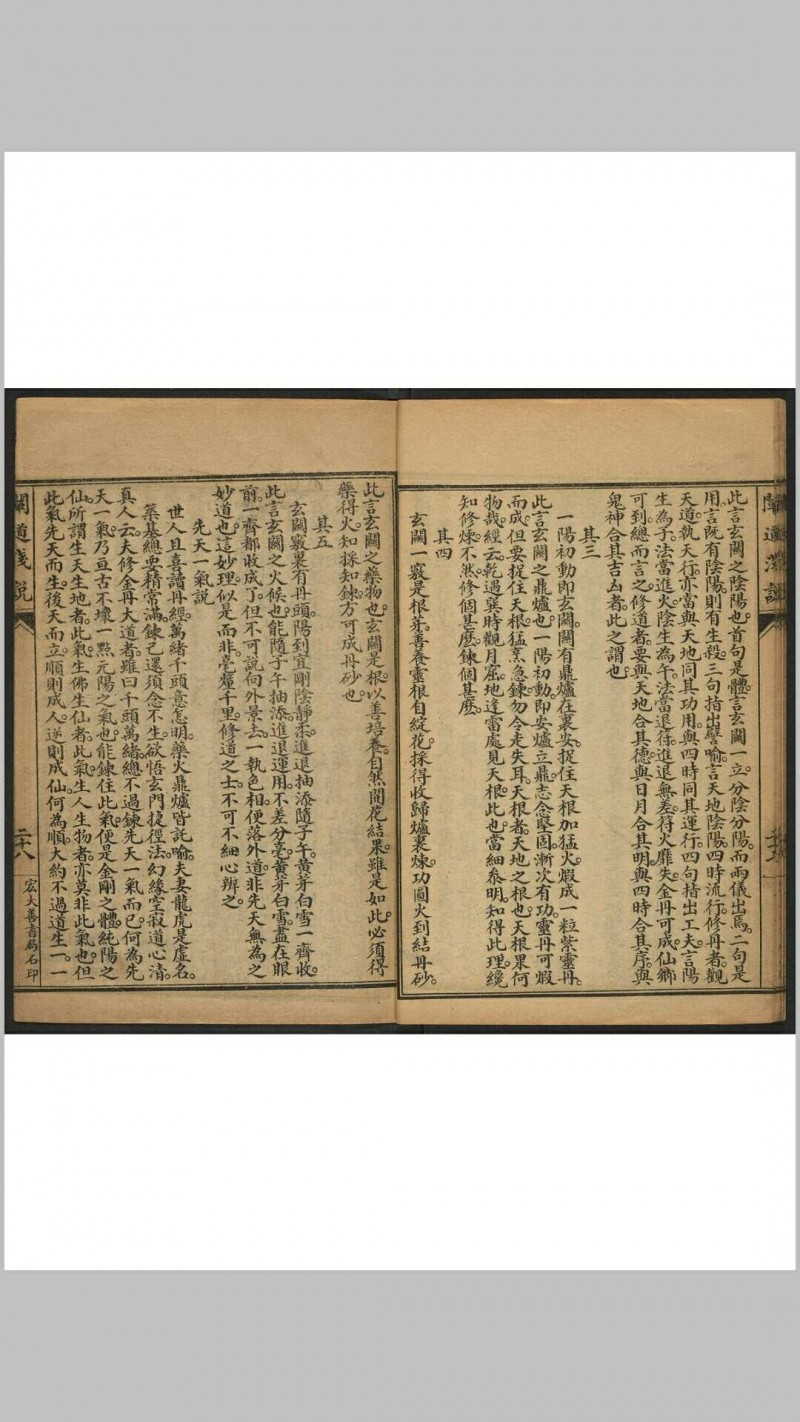 此言玄關之陰陽也。首句是體。言玄關一立。分陰分陽。而兩儀出焉。二句是
用。言既有陰陽。則有生殺。三句指出譬喻。言天地陰陽。四時流行。修丹者。觀
天道。執天行。亦當與天地同其功用。與四時同其運行。四句指出工夫。言陽
生為子。法當進火。陰生為午。法當退符。進退無差。符火靡失。金丹可成。仙鄉
可到。總而言之。修道者。要與天地合其德。與日月合其明。與四時合其序。與
鬼神合其吉凶者。此之謂也。
其三
一陽初動即玄關。關有鼎爐在裏安。捉住天根加猛火。煅成一粒紫靈丹。
此言玄關之鼎爐也。一陽初動。即安爐立鼎。志念堅固。漸次有功。靈丹可煅
而成。但要捉住天根。猛烹急鍊。勿令走失耳。天根者。天地之根也。天根果何
物哉。經云。乾遇巽時觀月窟。地逢雷處見天根。此也。當細叅明。知得此理。纔
知修煉。不然。修個甚麼。鍊個甚麼。
其四
玄關一竅是根芽。善養靈根自綻花。採得收歸爐裏煉。功圓火到結丹砂。
此言玄關之藥物也。玄關是根。以善培養。自然開花結果。雖是如此。必須得
藥得火。知採知鍊。方可成丹砂也。
其五
玄關竅裏有丹頭。陽到宜剛陰靜柔。進退抽添隨子午。黃芽白雪一齊收。
此言玄關之火候也。能隨子午抽添。進退運用。不差分毫。黃芽白雪。盡在眼
前。一齊都收成了。但不可說向外景去。一執色相。便落外道。非先天無為之
妙道也。這妙理似是而非。毫釐千里。修道之士。不可不細心辨之。
先天一氣說
世人且喜讀丹經。萬緒千頭意怎明。藥火鼎爐皆託喻。夫妻龍虎是虛名。
築基總要精常滿。鍊己還須念不生。欲悟玄門捷徑法。幻緣空寂道心清。
真人云。夫修金丹大道者。雖曰千頭萬緒。總不過鍊先天一氣而已。何為先
天一氣。乃亘古不壞。一㸃元陽之氣也。能鍊住此氣。便是金剛之體。純陽之
仙。所謂生天生地者。此氣。生佛生仙者。此氣。生人生物者。亦莫非此氣也。但
此氣先天而生。後天而立。順則成人。逆則成仙。何為順。大約不過道生一。一
闡道淺說
二十八
宏大善書局石印